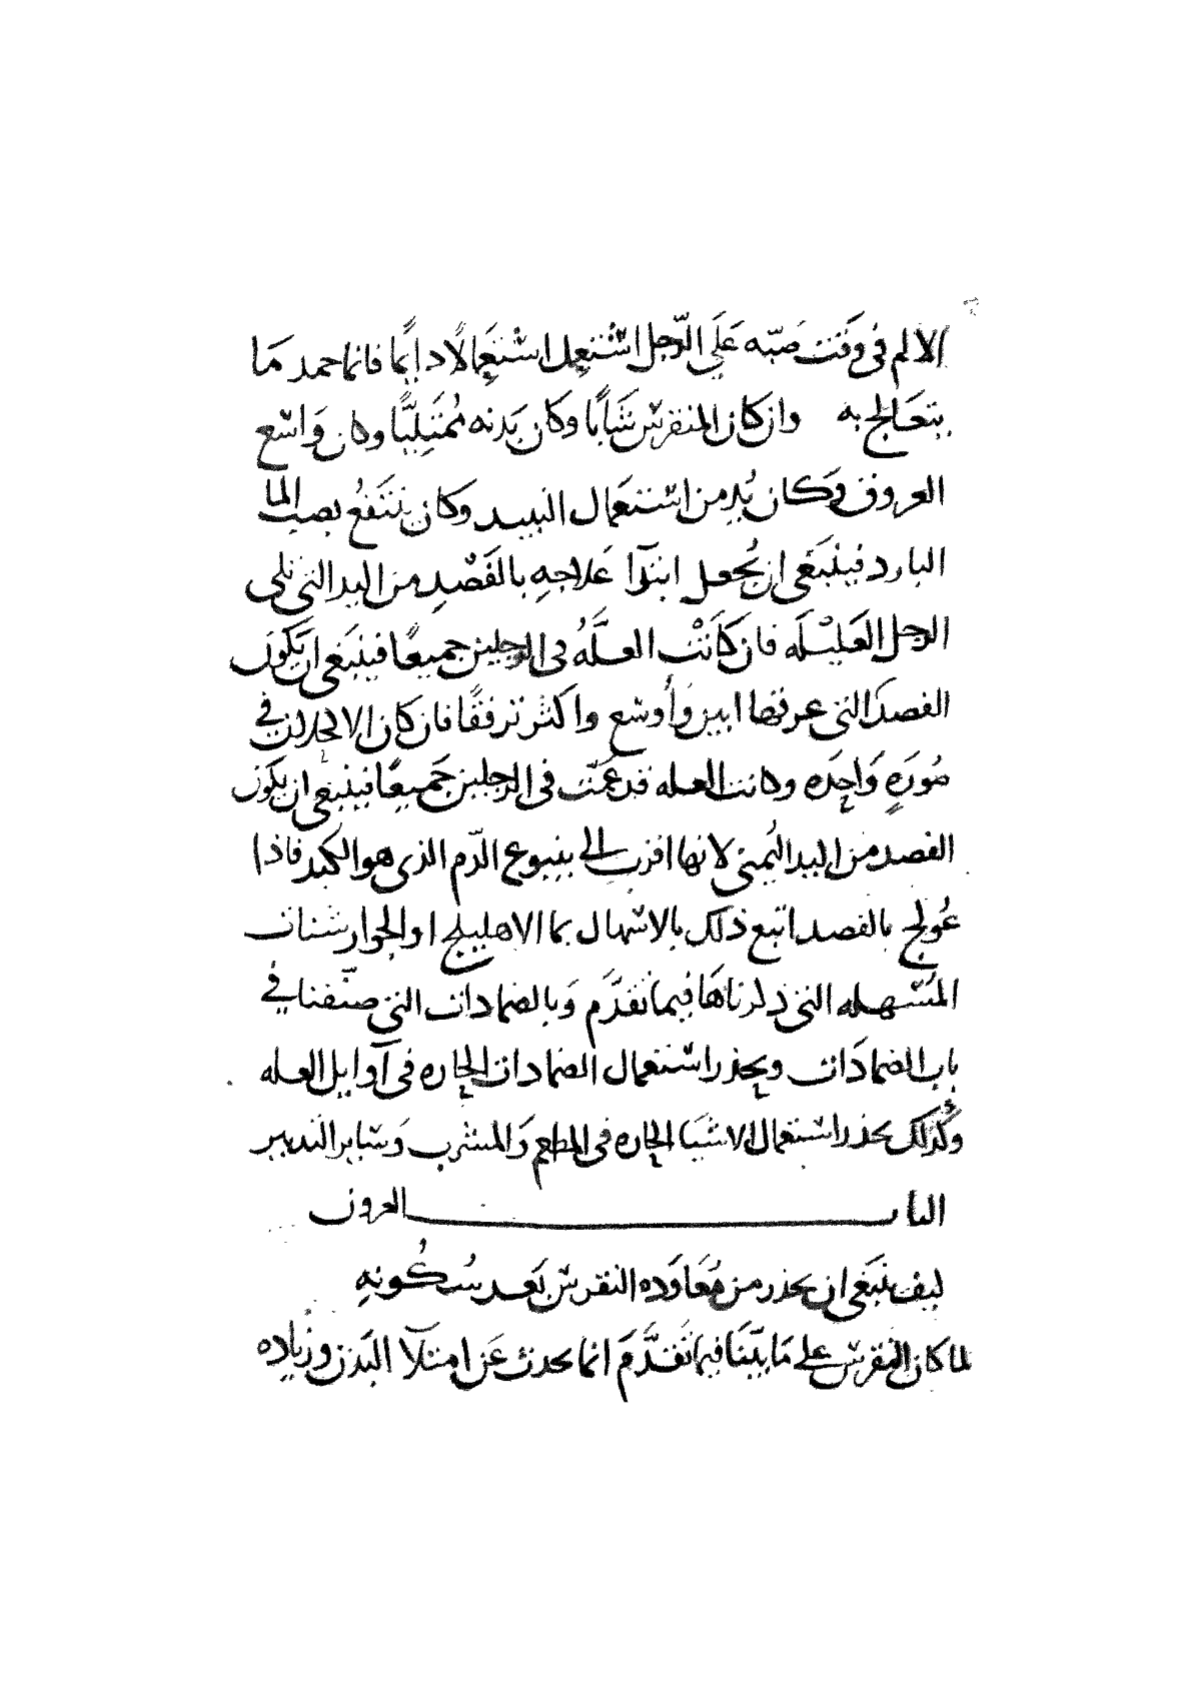 الالم في وقت صبّه عَلَى الرّجل اسْتعمل اسْتِعمَالًا دايمًا فانما حمد مَا
يتعَالج به وان كان المنقرس شَابًّا وكَان بَدنه مُمتَلِيًّا وكان وَاسع
العروق وَكان يُدمن استعمَال النبيد وكَان ينتَفعُ بصب الما
البارد فينبَغي ان يُجعل ابتدآ عَلاجهِ بالفَصْدِ من اليد التي تلي
الرجل العَليْلَه فان كَانَتْ العلَّهُ في الرجلين جميعًا فينبَغي ان يَكون
الفصد التي عرقها ابين وَأوسع واكثر ترفقًا فان كَان الا في
صُورَةٍ وَاحِدَه وكانت العله قد عَمّت في الرجلين جَميعًا فينبغي ان يَكون
الفصد من اليد اليُمني لانها اقرب الي ينبوع الدّم الذي هو الكبد فاذا
عُولج بالفصد اتبع ذلك بالاسهال بما الاهليلج او الجوارشنات
المُسَهله التي ذكرناهَا فيما تقدَّم وَبالضمادات التي صنّفنا في
باب الضمادَات ويحذر استعمال الضمادات الحاره في آوايل العله
وكَذلك يحذر استعمال الاشيَا الحاره في المطعم وَالمشرب وَساير التدبير
الباب العرون
كيف ينبَغي ان يحذر من مُعَاوَده النقرس بَعد سُكُونهِ
لما كان النقرس علي مَا بيّنَا فيما تَقدَّمَ انما يحدث عَن امتلآ البَدن وزياده